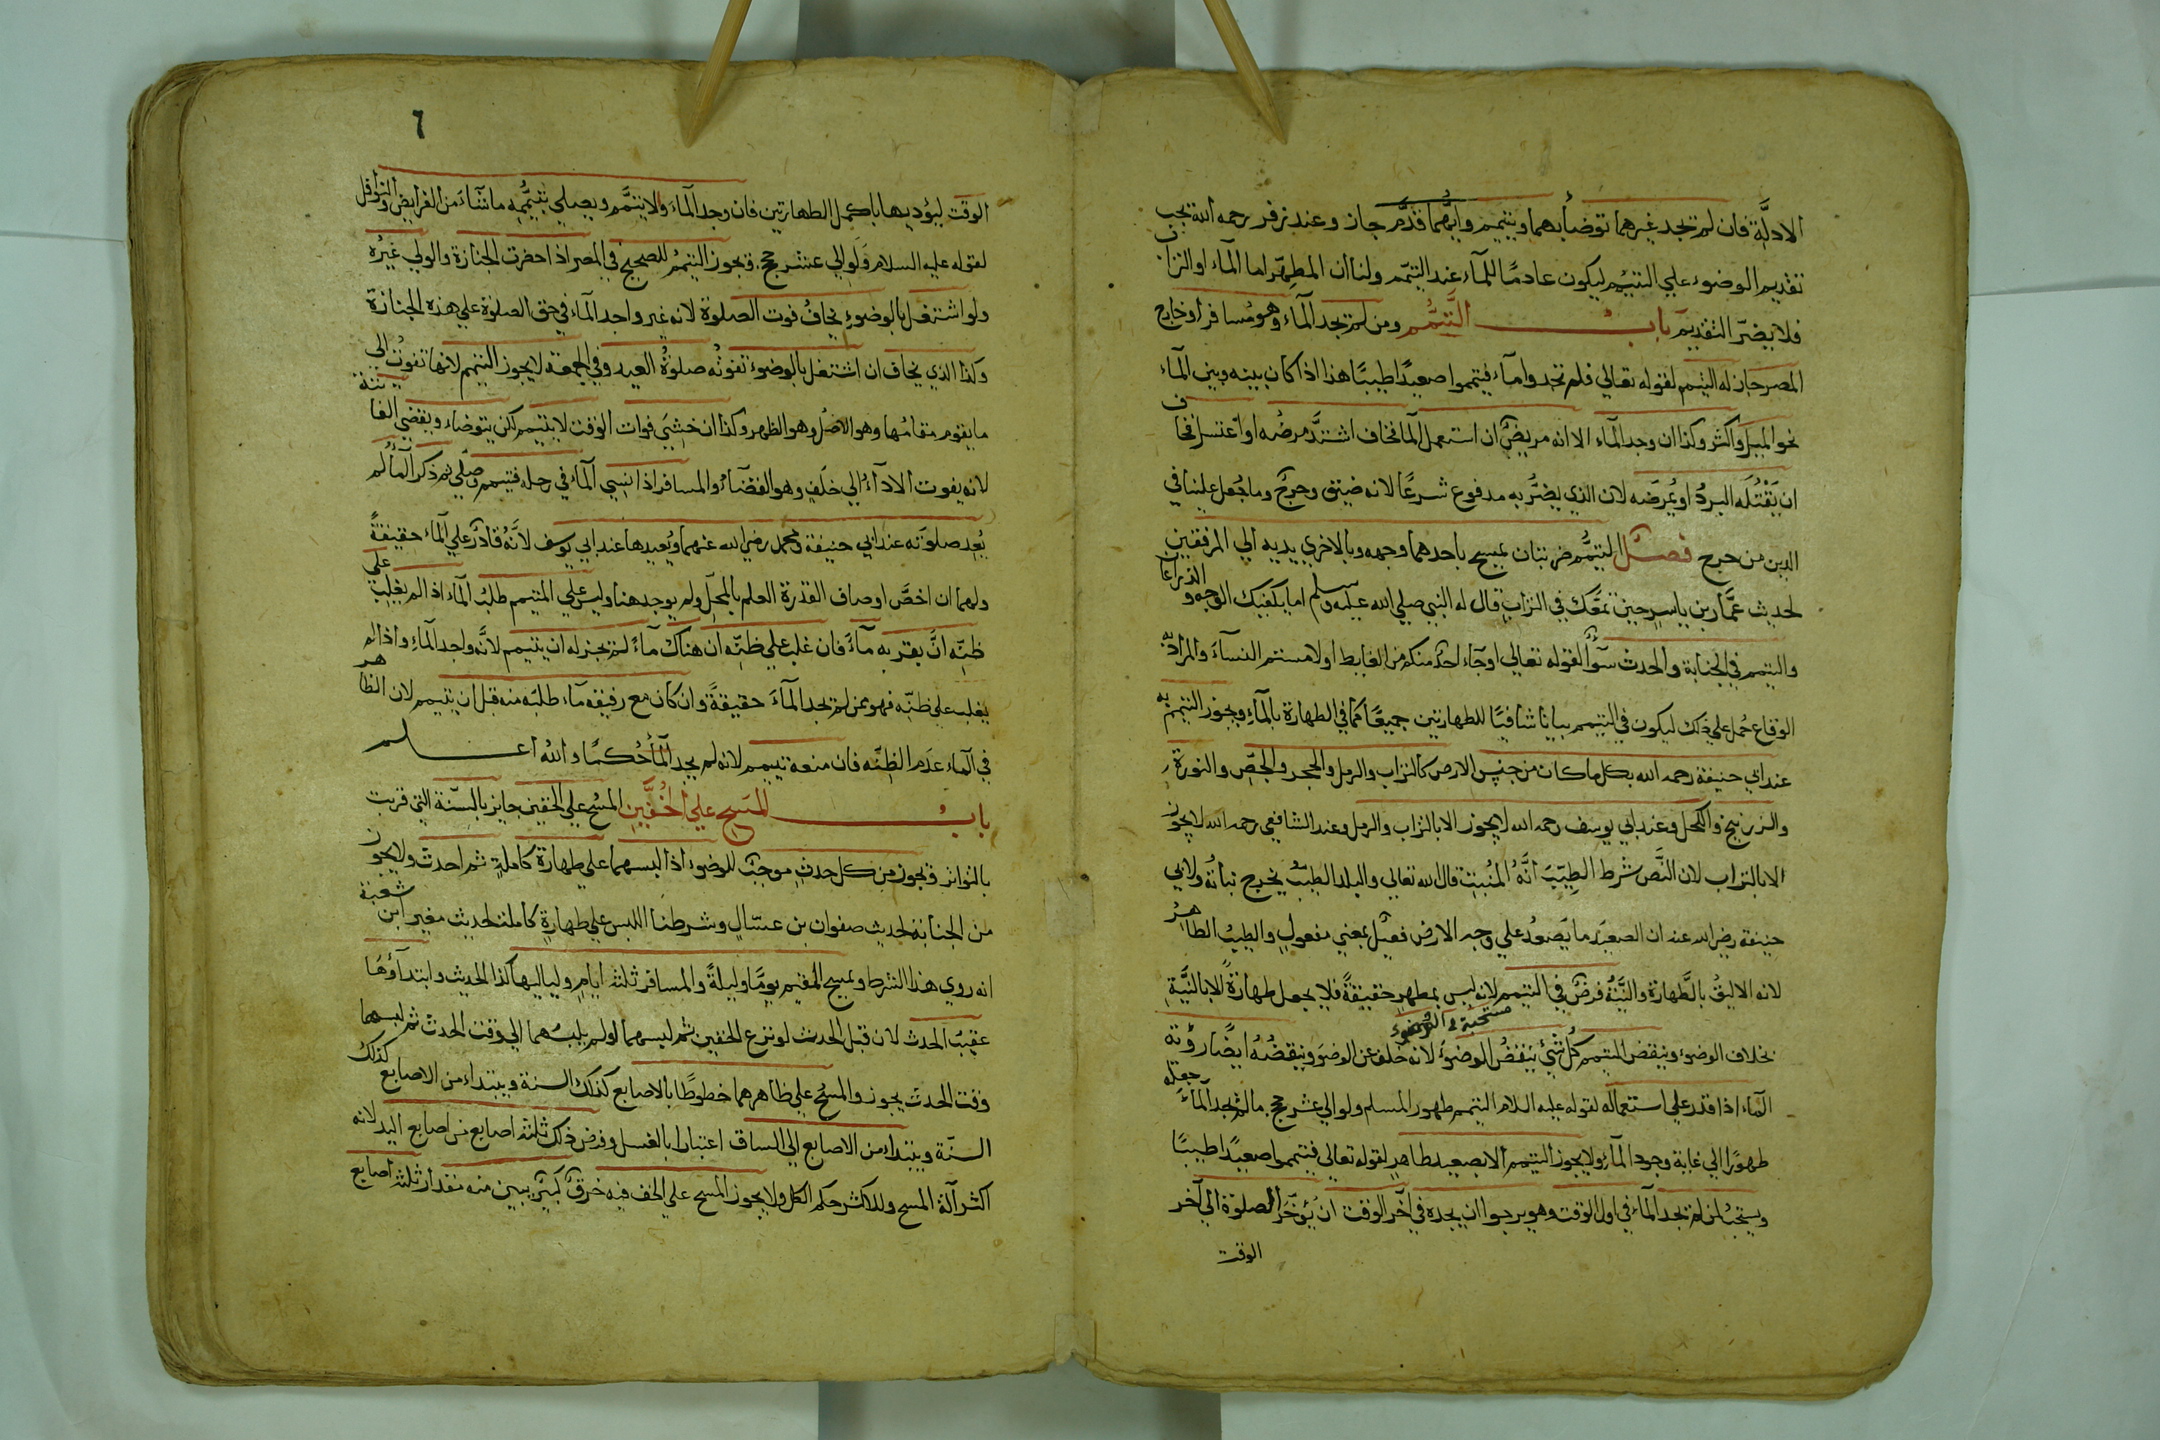 الادلة فان لم تجد غيرهما توضأ بهما ويتيمم وايهما قدم جاز وعند زفر رحمه الله يجب
تقديم الوضوء علي التيمم ليكون عادما للمآء عند التيمم ولنا ان المطهر اما المآء او التراب
فلا يضر التقديم باب التيمم ومن لم يجد المآء وهو مسافر او خارج
المصر جاز له التيمم لقوله تعالي فلم تجدوا مآء فتيمموا صعيدا طيبا هذا اذا كان بينه وبين المآء
نحو الميل واكثر وكذا ان وجد المآء الا انه مريض ان استعمل المآ فخاف اشتد مرضه او اغتسل فخاف
ان يقتله البرد او يمرضه لان الذي يضر به مدفوع شرعا لانه ضيق وحرج وما جعل علينا في
الدين من حرج فصل التيمم ضربتان يمسح باحدهما وجهه وبالاخري يديه الي المرفقين
لحديث عمار بن ياسر حين تمعك في التراب قال له النبي صلي الله عليه وسلم اما يكفيك الوجه والذراعان
والتيمم في الجنابة والحدث سوآ لقوله تعالي او جآء احد منكم من الغايط او لامستم النسآء والمراد به
الوقاع حمل علي ذلك ليكون في التيمم بيانا شافيا للطهارتين جميعا كما في الطهارة بالمآء ويجوز التيمم به
عند ابي حنيفة رحمه الله بكل ما كان من جنس الارض كالتراب والرمل والحجر والجص والنورة
والزرنيخ والكحل وعند ابي يوسف رحمه الله لا يجوز الا بالتراب والرمل وعند الشافعي رحمه الله لا يجوز
الا بالتراب لان النص شرط الطيب انه المنبت قال الله تعالي والبلد الطيب يخرج نباته ولابي
حنيفة رضي الله عنه ان الصعيد ما يصعد علي وجه الارض فعيل بمعني مفعول والطيب الطاهر
لانه الاليق بالطهارة والنية فرض في التيمم لانه ليس بمطهر حقيقة فلا يجعل طهارة الا بالنية
مستحبة في الوضوء
بخلاف الوضوء وينقض التيمم كل شئ ينقض الوضوء لانه خلف عن الوضو وينقضه ايضا رؤية
المآء اذا قدر علي استعماله لقوله عليه السلام التيمم طهور المسلم ولو الي عشر حجج ما لم يجد المآء جعله
طهورا الي غاية وجود المآء ولا يجوز التيمم الا بصعيد طاهر لقوله تعالي فتيمموا صعيدا طيبا
ويستحب لمن لم يجد المآء في اول الوقت وهو يرجوا ان يجده في آخر الوقت ان يؤخر الصلوة الي آخر
الوقت
٦
الوقت ليؤديها باكمل الطهارتين فان وجد المآء والا يتيمم ويصلي بتيممه ما شآء من الفرايض والنوافل
لقوله عليه السلام ولو الي عشر حجج ويجوز التيمم للصحيح في المصر اذا حضرت الجنازة والولي غيره
ولو اشتغل بالوضوء يخاف فوت الصلوة لانه غير واجد المآء في حق الصلوة علي هذه الجنازة
وكذا الذي يخاف ان اشتغل بالوضوء تفوته صلوة العيد وفي الجمعة لا يجوز التيمم لانها تفوت الي
ما يقوم مقامها وهو الاصل وهو الظهر وكذا ان خشي فوات الوقت لا يتيمم لكن يتوضاء ويقضي الفائتة
لانه يفوت الادآء الي خلف وهو القضآء والمسافر اذا نسي المآء في رحله فتيمم وصلي ثم ذكر المآ لم
يعد صلوته عند ابي حنيفة ومحمد رضي الله عنهما ويعيدها عند ابي يوسف لانه قادر علي المآء حقيقة
ولهما ان اخص اوصاف القدرة العلم بالمحل ولم يوجد هنا وليس علي المتيمم طلب المآء اذا لم يغلب علي
ظنه ان بقربه مآء فان غلب علي ظنه ان هناك مآء لم يجز له ان يتيمم لانه واجد المآء واذا لم
يغلب علي ظنه فهو ممن لم يجد المآء حقيقة وان كان مع رفيقه مآء طلبه منه قبل ان يتيمم لان الظاهر
في المآء عدم الظنة فان منعه تيمم لانه لم يجد المآ حكما والله اعلم
باب المسح علي الخفين المسح علي الخفين جايز بالسنة التي قربت
بالتواتر ويجوز من كل حدث موجب للوضوء اذا لبسهما علي طهارة كاملة ثم احدث ولا يجوز
من الجنابة لحديث صفوان بن عسال وشرطنا اللبس علي طهارة كاملة لحديث مغير ابن شعبة
انه روي هذا الشرط ويمسح المقيم يوما وليلة والمسافر ثلثة ايام ولياليها كذا الحديث وابتدآؤها
عقيب الحدث لان قبل الحدث لو نزع الخفين ثم لبسهما او لم يلبسهما الي وقت الحدث ثم لبسهما
وقت الحدث يجوز والمسح علي ظاهرهما خطوطا بالاصابع كذلك السنة ويبتداء من الاصابع كذلك
السنة ويبتداء من الاصابع الي الساق اعتبارا بالغسل وفرض ذلك ثلثة اصابع من اصابع اليد لانه
اكثر آلة المسح وللاكثر حكم الكل ولا يجوز المسح علي الخف فيه خرق كبير يبين منه مقدار ثلثة اصابع